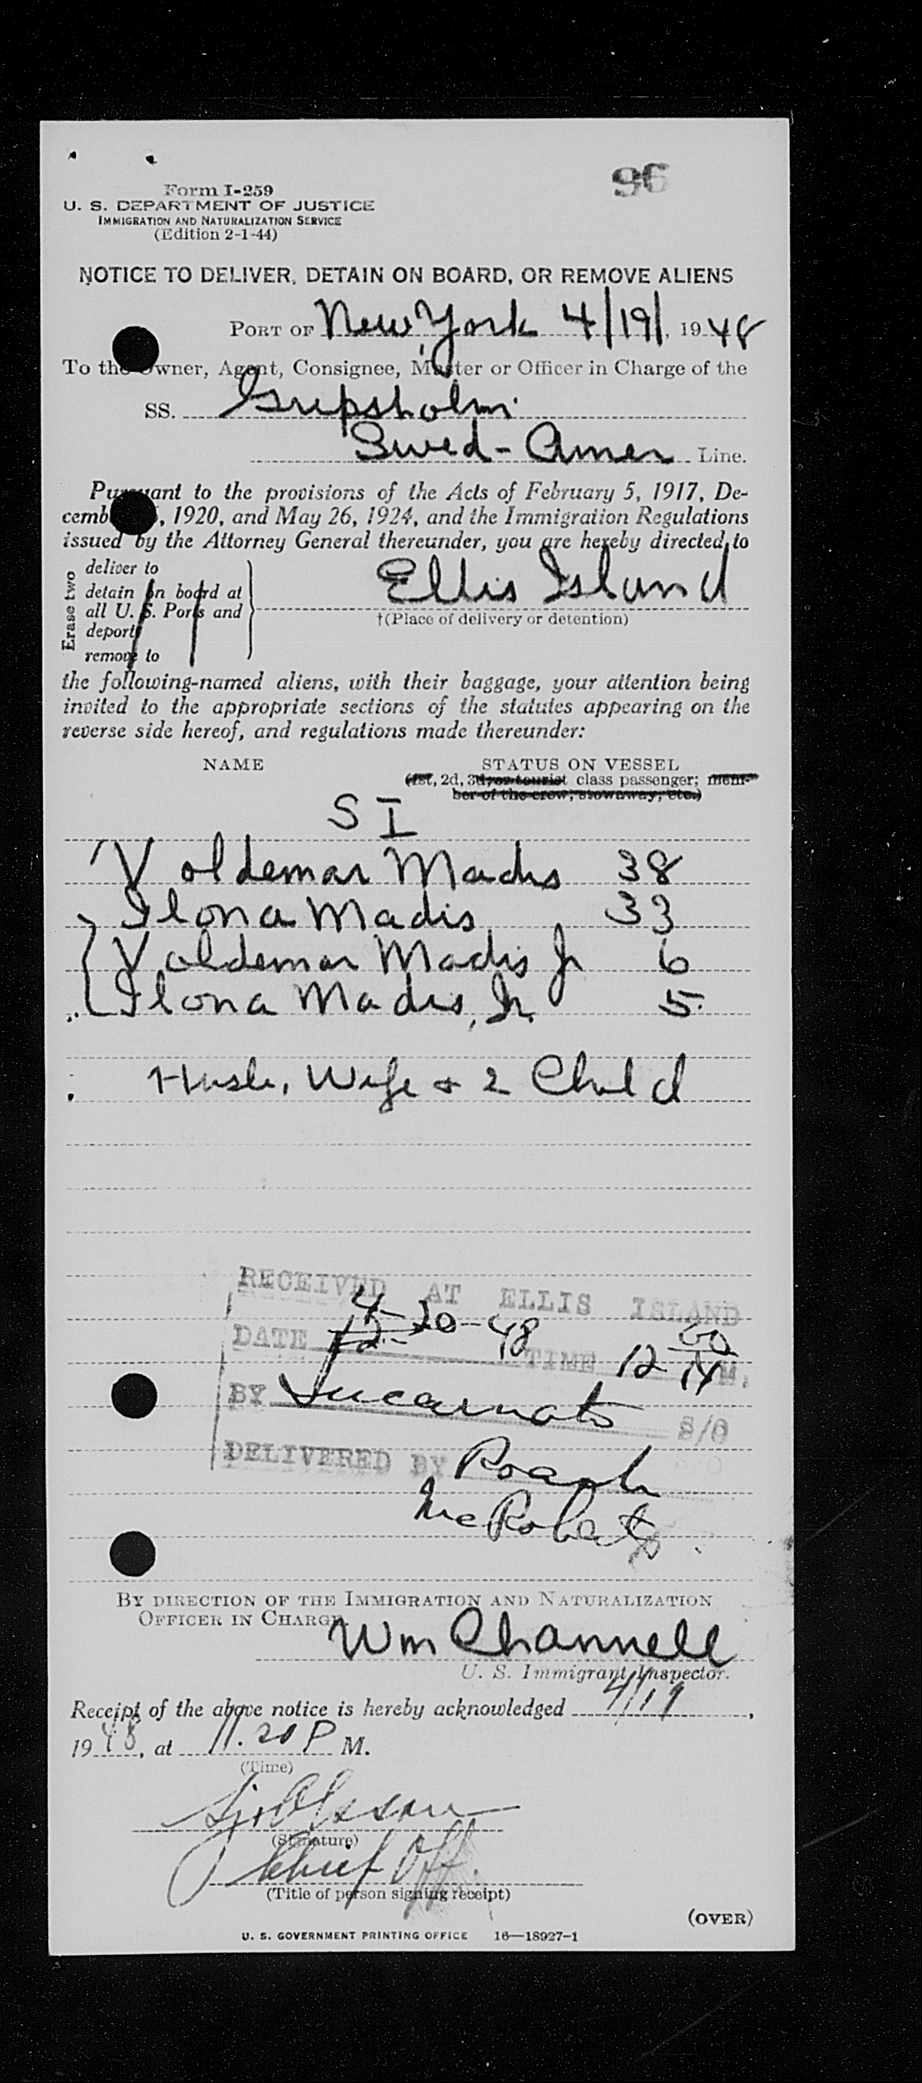 96
Form I-259
U. S. DEPARTMENT OF JUSTICE
IMMIGRATION AND NATURALIZATION SERVICE
(Edition 2-1-44)
NOTICE TO DELIVER, DETAIN ON BOARD, OR REMOVE ALIENS
PORT OF New York 4/19/, 1948
To the Owner, Agent, Consignee, Master or Officer in Charge of the
SS. Gripsholm
Swed-Amer Line.
Pursuant to the provisions of the Acts of February 5, 1917, De-
cemb , 1920, and May 26, 1924, and the Immigration Regulations
issued by the Attorney General thereunder, you are hereby directed to
Erase two
deliver to
detain on board at
all U. S. Ports and
deport
remove to
Ellis Island
†(Place of delivery or detention)
the following-named aliens, with their baggage, your attention being
invited to the appropriate sections of the statutes appearing on the
reverse side hereof, and regulations made thereunder:
NAME STATUS ON VESSEL
(1st, 2d, 3d, or tourist class passenger; mem-
ber of the crew, stowaway, etc.)
S I
Voldemar Madis 38
Ilona Madis 33
Voldemar Madis Jr 6
Ilona Madis, Jr. 5
Husb, Wife + 2 Child
RECEIVED AT ELLIS ISLAND
DATE 4-20-48 TIME 12 M.
BY Lucarnato S/O
DELIVERED BY Roach
McRoberts
BY DIRECTION OF THE IMMIGRATION AND NATURALIZATION
OFFICER IN CHARGE
Wm Channell
U. S. Immigrant Inspector.
Receipt of the above notice is hereby acknowledged 4/19,
1948, at 11.20 P M.
(Time)
(Signature)
Chief Off.
(Title of person signing receipt)
(OVER)
U. S. GOVERNMENT PRINTING OFFICE 16—18927-1